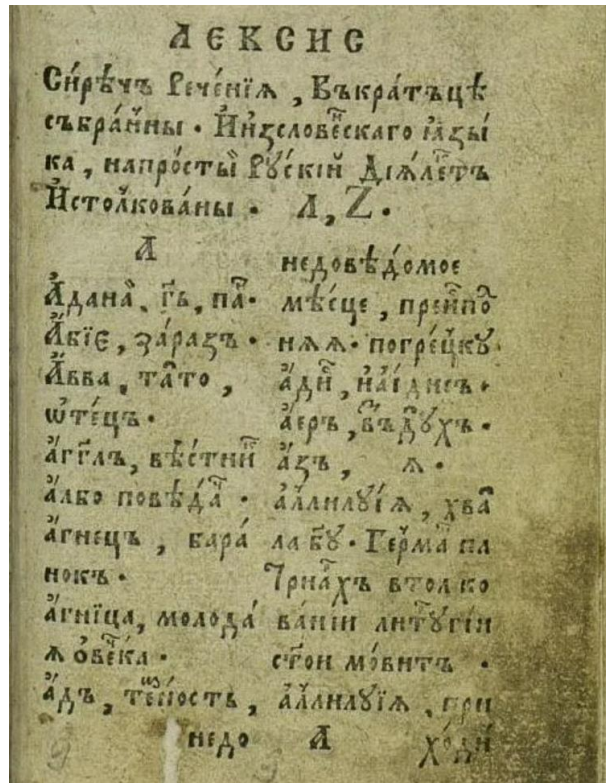 ЛЕКСИС
Си́рѣчъ Рече́нїѧ, Въкра́тъцѣ
събра́нны. И́изслове́нскаго ꙗ҆зы́
ка, напро́стый Рꙋ́скїй Дїѧ́лектъ
И҆столкова́ны. А, Z.
А
А҆дана̀, гь, па.
А҆́бїе, за́разъ.
А҆́вва, та́то,
ѿте́цъ.
а҆́гг҃лъ, вѣ́стник
а҆́лбо повѣда́ч.
а҆́гнецъ, бара́
нокъ.
а҆́гнїца, молода́
ѧ ове́чка.
а҆́дъ, те́мность,
недо
недовѣ́домое
мѣ́сце, преиспо́
нѧѧ. погре́цкꙋ
а҆́ди,
а҆е́ръ, въ́здꙋхъ.
а҆́зъ, ѧ.
а҆ллилꙋ́їѧ, хва
ла бг҃ꙋ. Герма́н па
трїа́рхъ втолко
ва́нїи литꙋргїи
ст҃ои мо́витъ.
а҆ллилꙋ́їѧ, при
А хо́дит